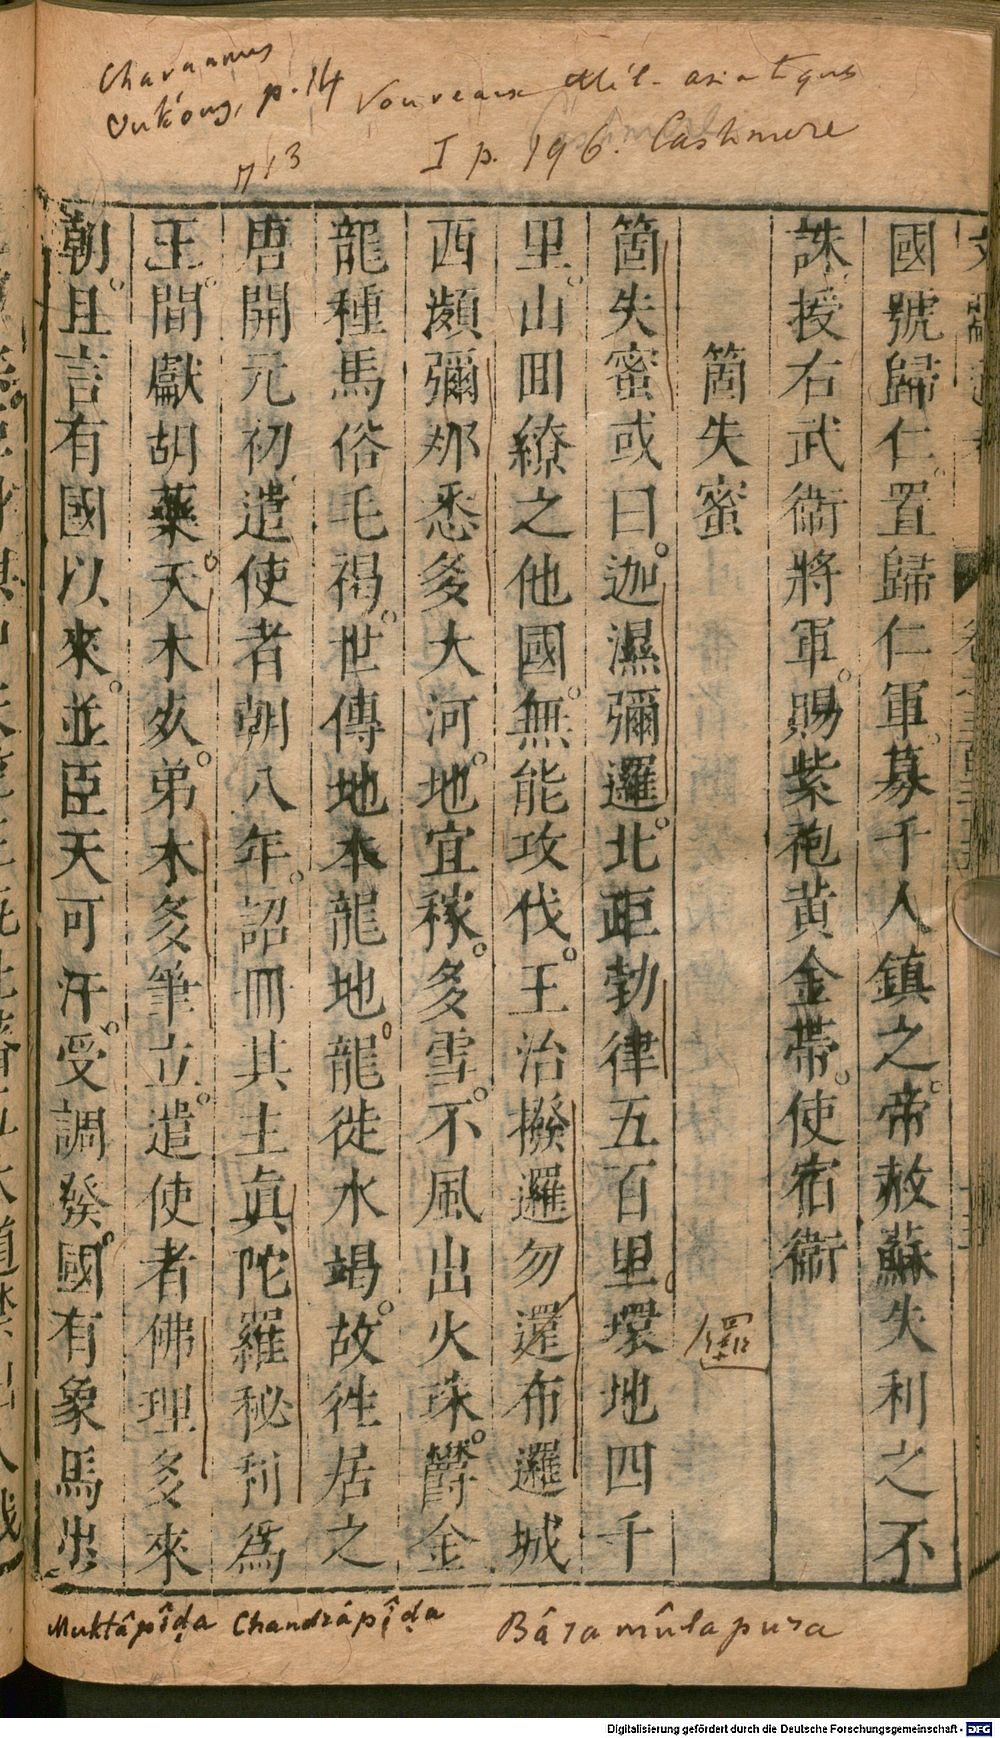 Chavannes
Oukóng, p. 14
Nouveaux Mél. asiatiques
I p. 196. Cashmere
713
國號歸仁置歸仁軍募千人鎮之帝赦蘇失利之不
誅授右武衞將軍賜紫袍黃金帶使宿衞
箇失蜜
箇失蜜或曰迦濕彌邏北距勃律五百里環地四千
里山回繚之他國無能攻伐王治撥邏勿邏布邏城
西瀕彌那悉多大河地宜稼多雪不風出火珠鬱金
龍種馬俗毛褐世傳地本龍池龍徙水竭故往居之
唐開元初遣使者朝八年詔冊其主眞陀羅秘利爲
王間獻胡藥天木死弟木多筆立遣使者佛理多來
朝且言有國以來並臣天可汗受調發國有象馬步
邏
Muktâpîḍa Chandrápîḍa
Bâramûlapura
Digitalisierung gefördert durch die Deutsche Forschungsgemeinschaft - DFG